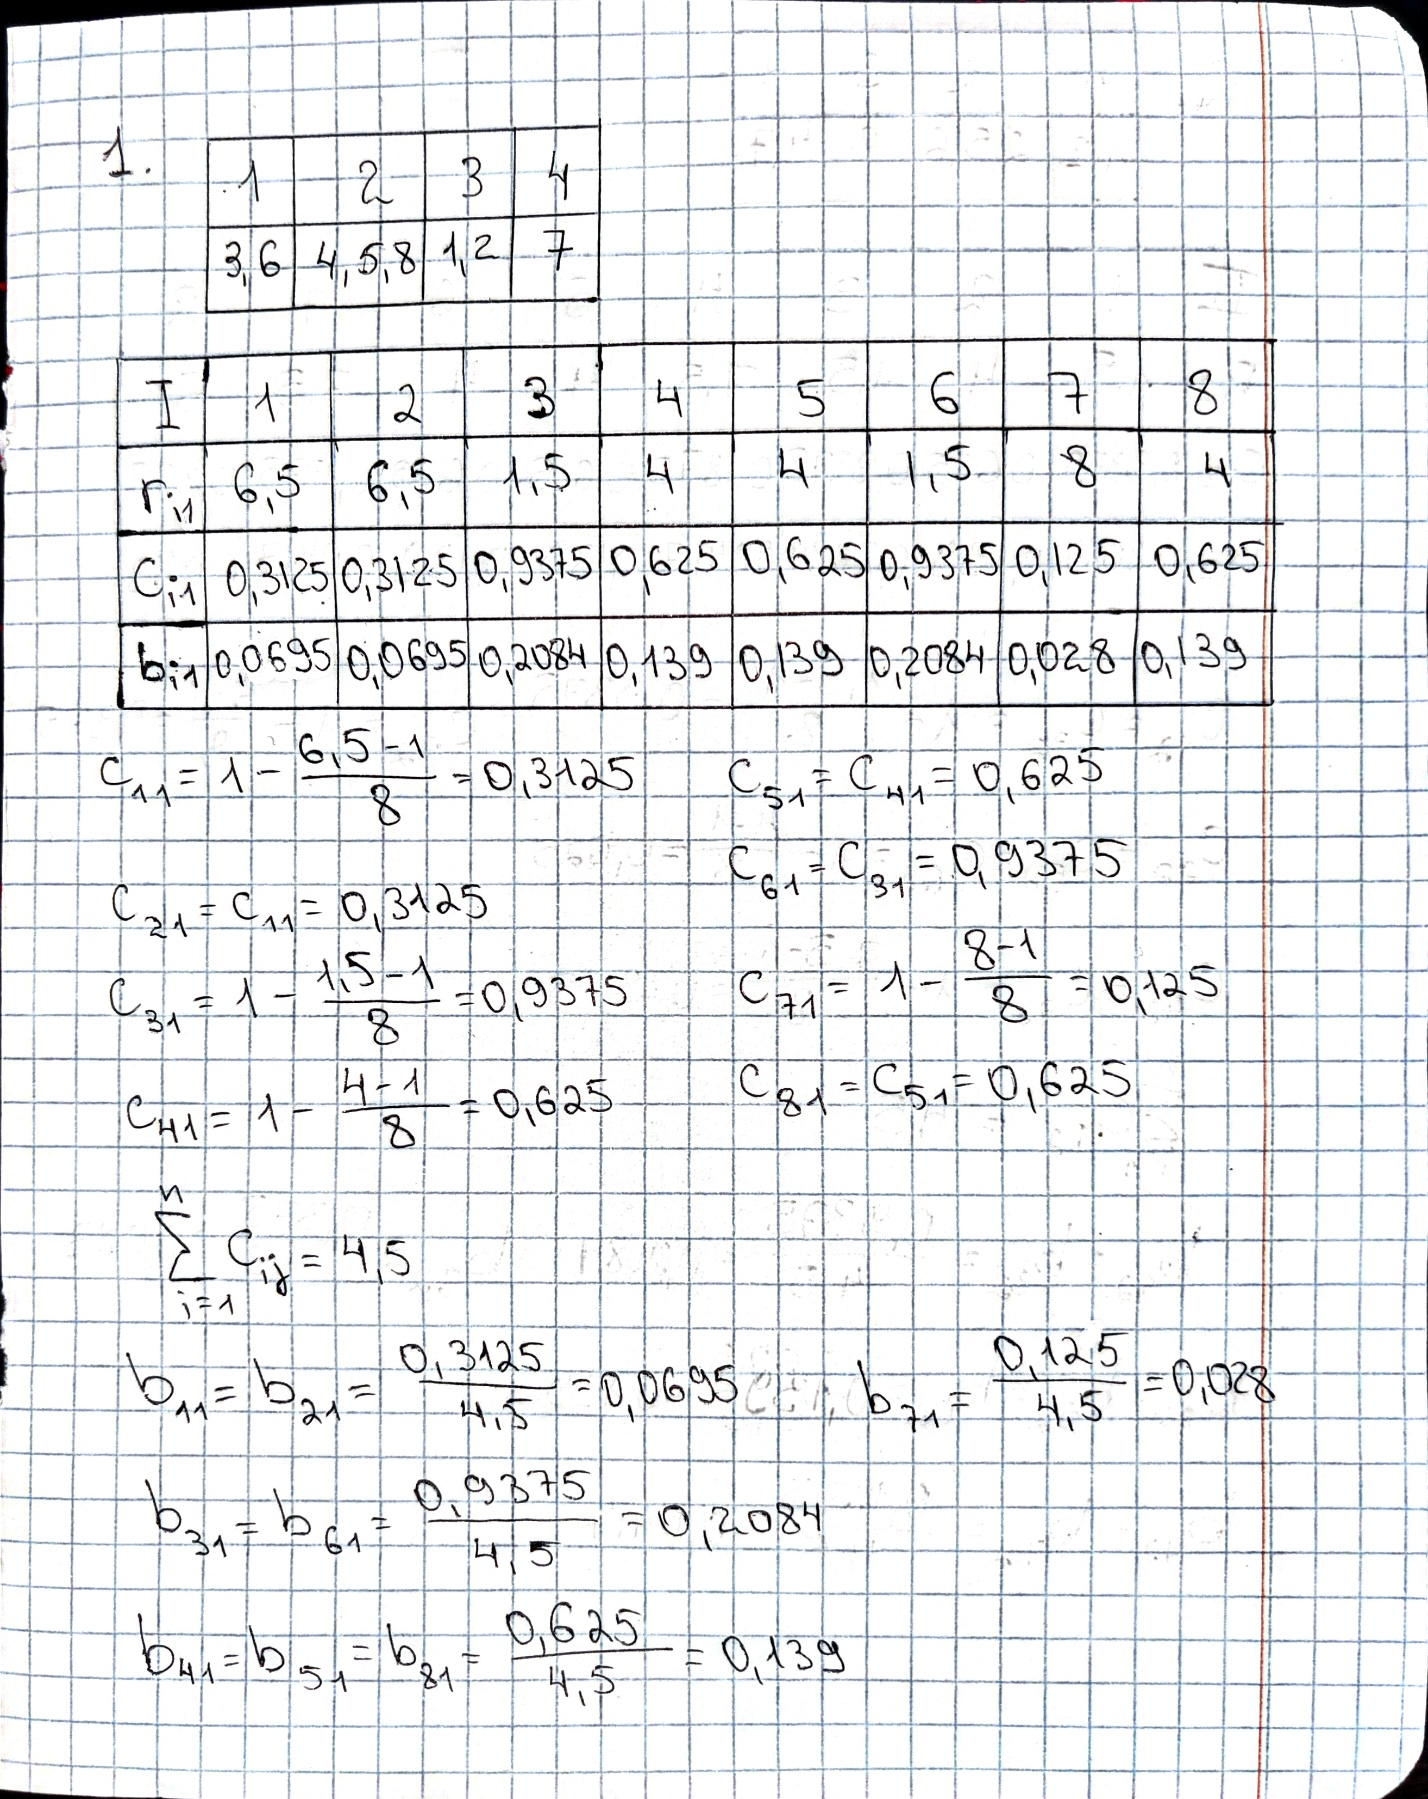 1.
1 2 3 4
3,6 4,5,8 1,2 7
I 1 2 3 4 5 6 7 8
r_{i1} 6,5 6,5 1,5 4 4 1,5 8 4
C_{i1} 0,3125 0,3125 0,9375 0,625 0,625 0,9375 0,125 0,625
b_{i1} 0,0695 0,0695 0,2084 0,139 0,139 0,2084 0,028 0,139
C_{11} = 1 - \frac{6,5-1}{8} = 0,3125
C_{21} = C_{11} = 0,3125
C_{31} = 1 - \frac{1,5-1}{8} = 0,9375
C_{41} = 1 - \frac{4-1}{8} = 0,625
C_{51} = C_{41} = 0,625
C_{61} = C_{31} = 0,9375
C_{71} = 1 - \frac{8-1}{8} = 0,125
C_{81} = C_{51} = 0,625
\sum_{i=1}^{n} C_{ij} = 4,5
b_{11} = b_{21} = \frac{0,3125}{4,5} = 0,0695
b_{71} = \frac{0,125}{4,5} = 0,028
b_{31} = b_{61} = \frac{0,9375}{4,5} = 0,2084
b_{41} = b_{51} = b_{81} = \frac{0,625}{4,5} = 0,139